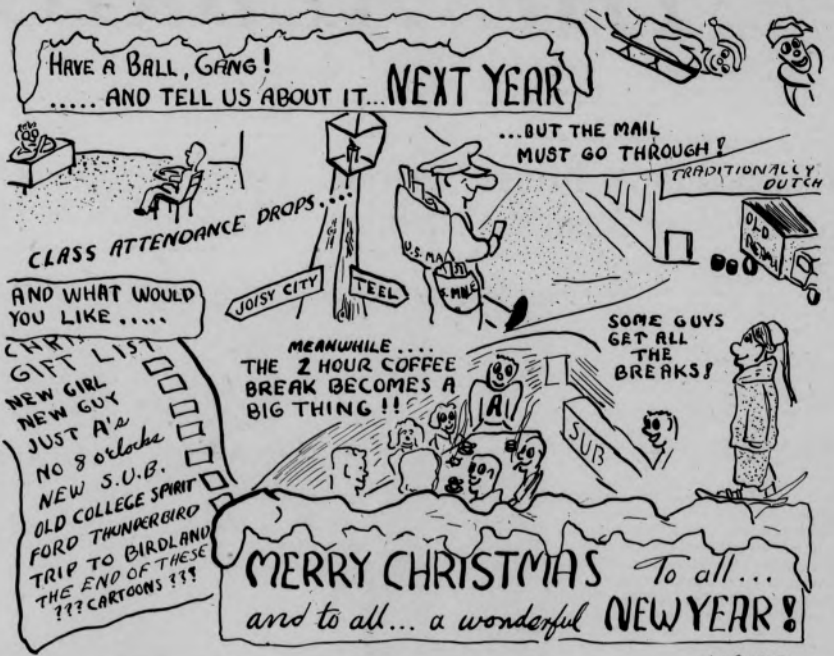 HAVE A BALL, GANG!
..... AND TELL US ABOUT IT... NEXT YEAR
...BUT THE MAIL
MUST GO THROUGH!
TRADITIONALLY
DUTCH
OLD
CLASS ATTENDANCE DROPS....
U.S. MA
JOISY CITY
TEEL
AND WHAT WOULD
YOU LIKE .....
GIFT LIST
NEW GIRL
NEW GUY
JUST A's
NO 8 o'clocks
NEW S.U.B.
OLD COLLEGE SPIRIT
FORD THUNDERBIRD
TRIP TO BIRDLAND
THE END OF THESE
??? CARTOONS ???
MEANWHILE ....
THE 2 HOUR COFFEE
BREAK BECOMES A
BIG THING !!
A
SUB
SOME GUYS
GET ALL
THE
BREAKS!
MERRY CHRISTMAS To all...
and to all... a wonderful NEW YEAR!